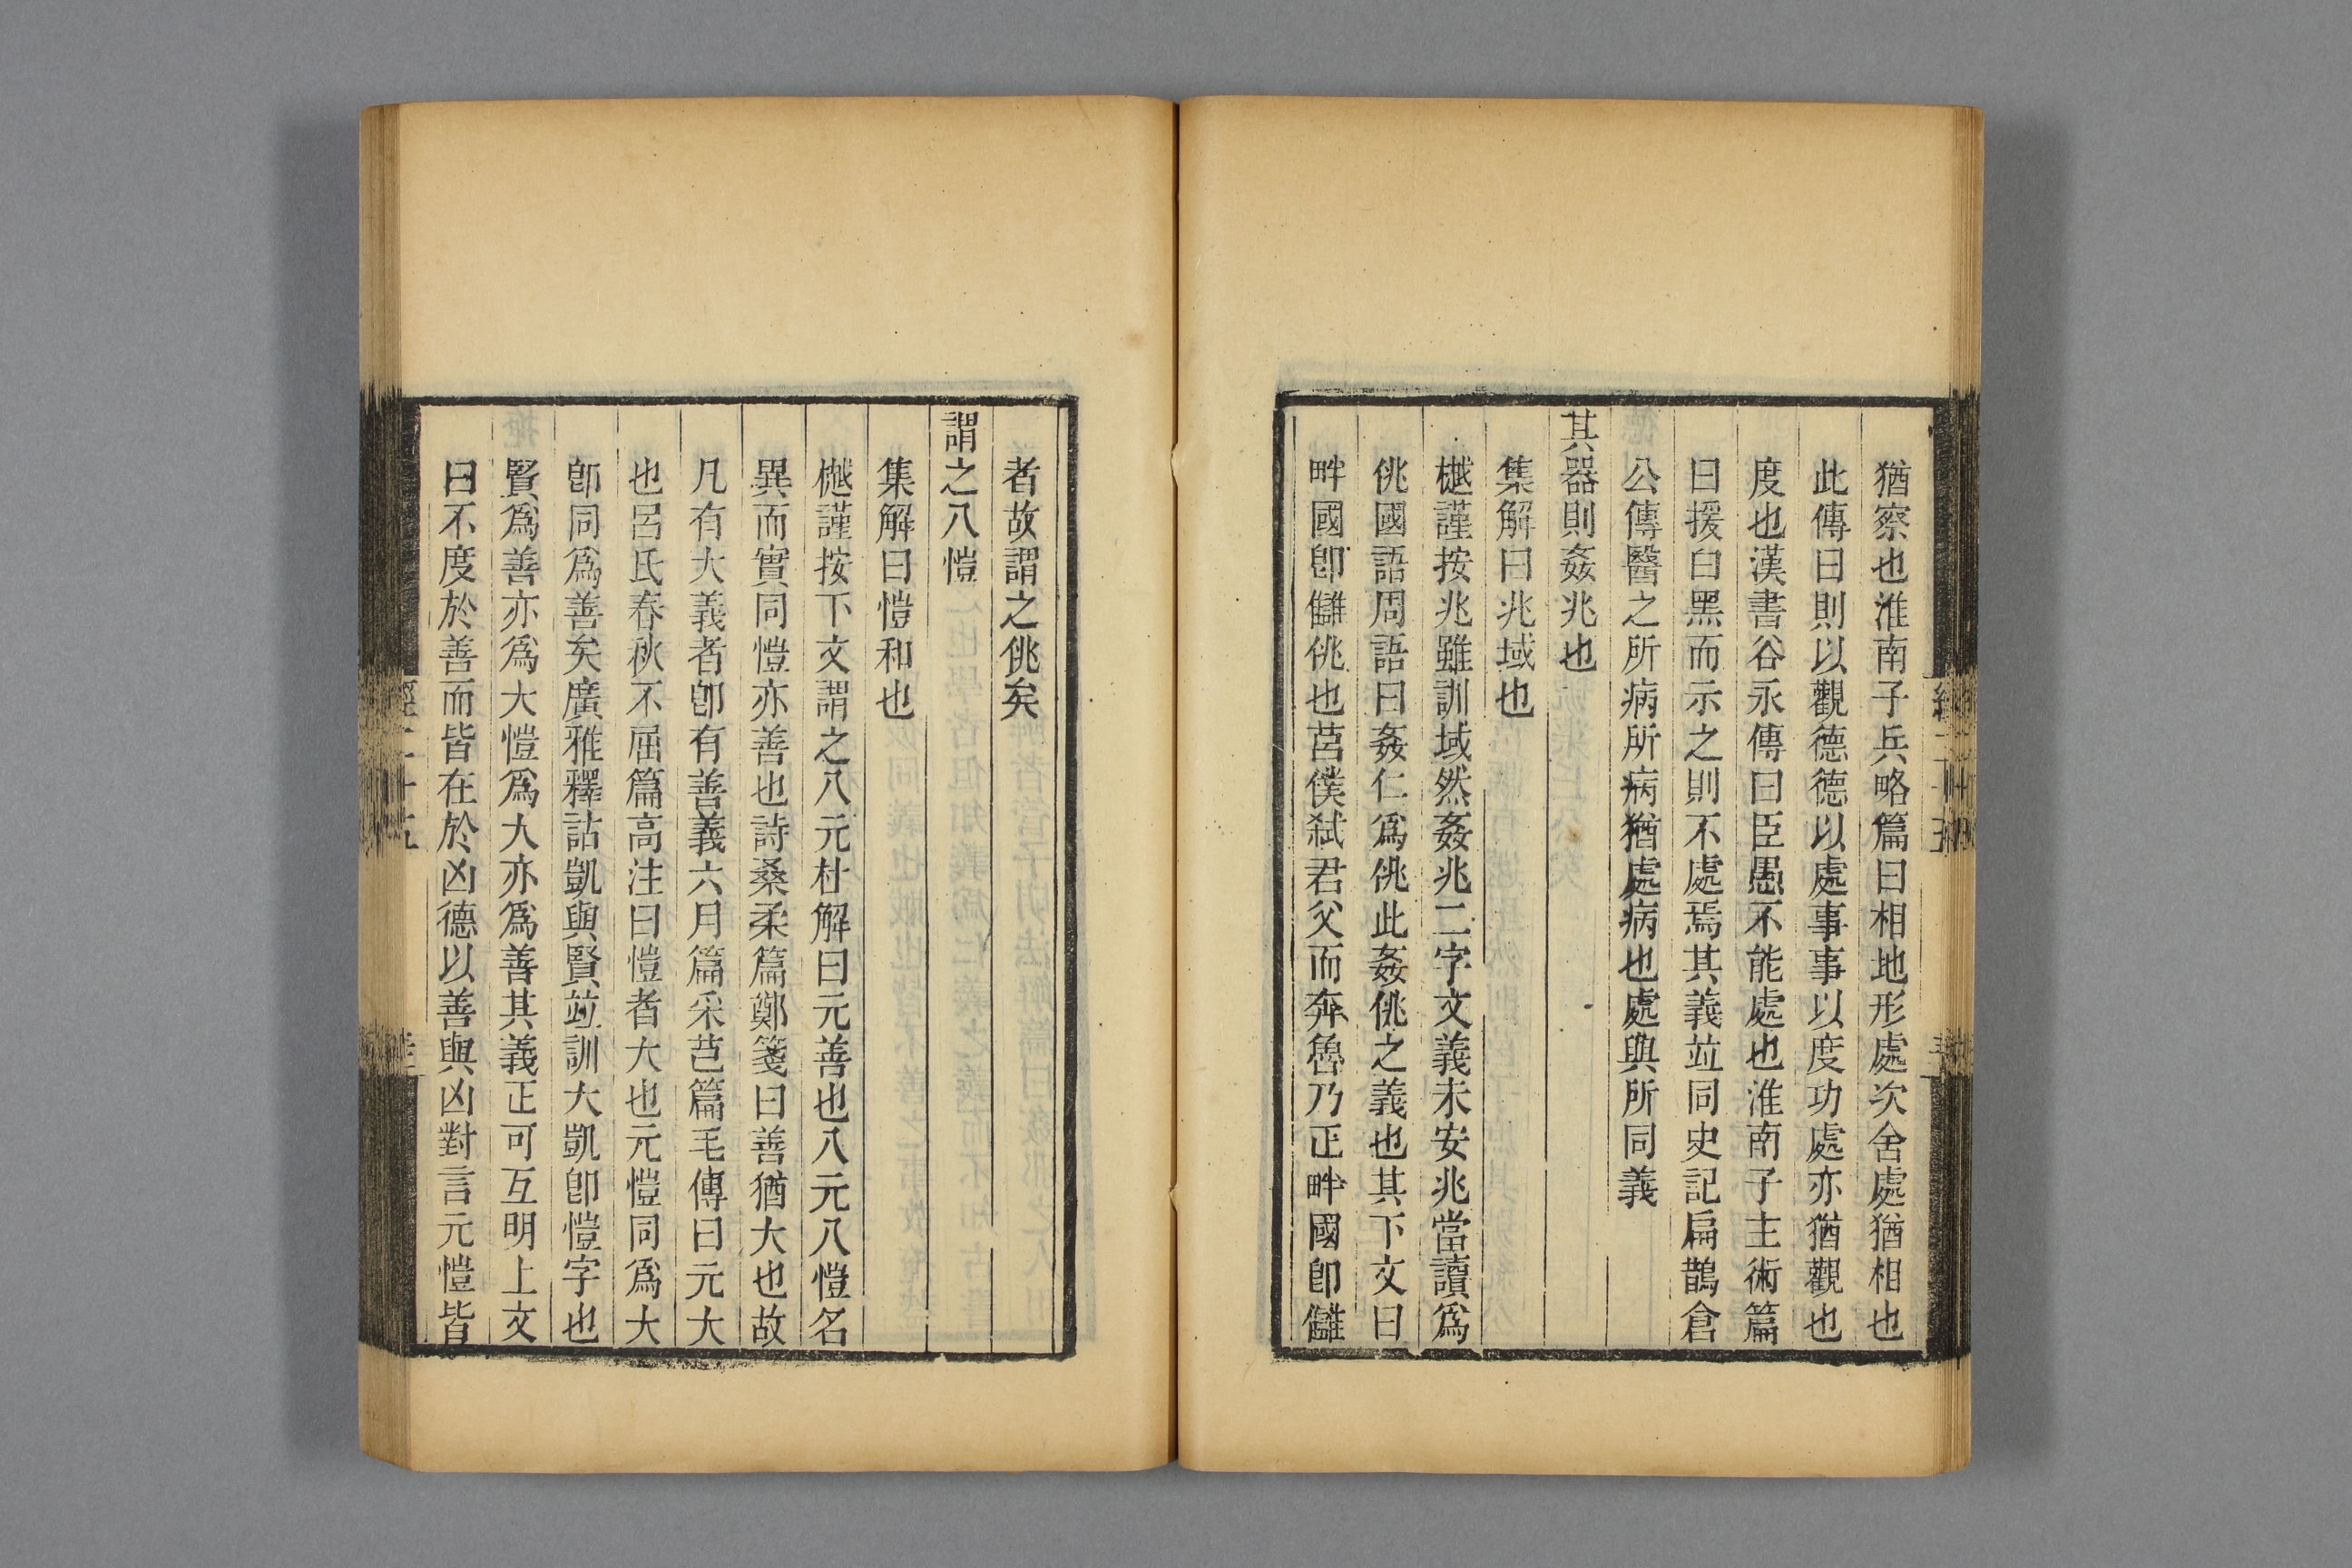 猶察也淮南子兵略篇曰相地形處次舍處猶相也
此傳曰則以觀德德以處事事以度功處亦猶觀也
度也漢書谷永傳曰臣愚不能處也淮南子主術篇
曰援白黑而示之則不處焉其義竝同史記扁鵲倉
公傳醫之所病所病猶處病也處與所同義
其器則姦兆也
集解曰兆域也
樾謹按兆雖訓域然姦兆二字文義未安兆當讀爲
佻國語周語曰姦仁爲佻此姦佻之義也其下文曰
畔國卽讎佻也莒僕弑君父而奔魯乃正畔國卽讎
者故謂之佻矣
謂之八愷
集解曰愷和也
樾謹按下文謂之八元杜解曰元善也八元八愷名
異而實同愷亦善也詩桑柔篇鄭箋曰善猶大也故
凡有大義者卽有善義六月篇采芑篇毛傳曰元大
也呂氏春秋不屈篇高注曰愷者大也元愷同爲大
卽同爲善矣廣雅釋詁凱與賢竝訓大凱卽愷字也
賢爲善亦爲大愷爲大亦爲善其義正可互明上文
曰不度於善而皆在於凶德以善與凶對言元愷皆
經二十五